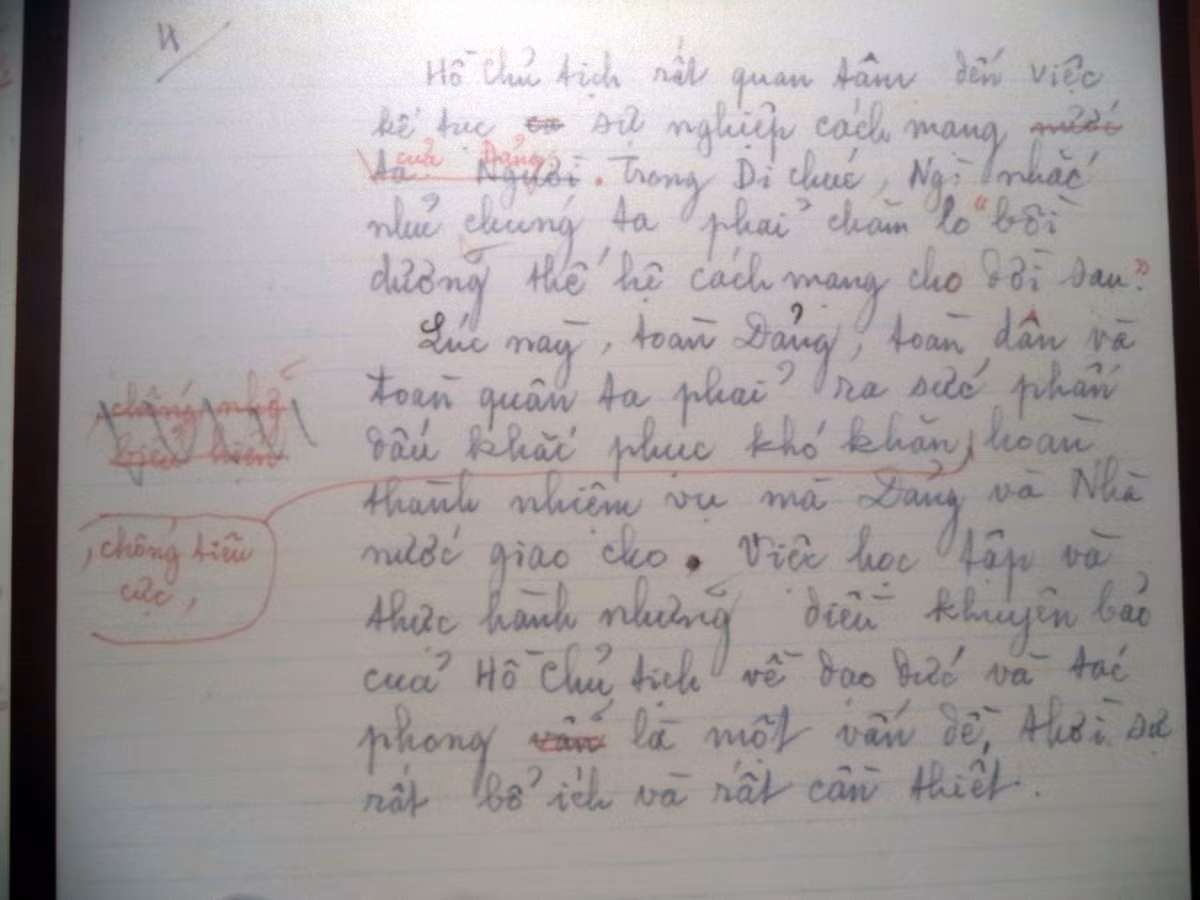 4
Hồ Chủ tịch rất quan tâm đến việc
kế tục sự nghiệp cách mạng nước
của Đảng
ta Người. Trong Di chúc, Ng` nhắc
nhủ chúng ta phải chăm lo "bồi
dưỡng thế hệ cách mạng cho đời sau".
Lúc này, toàn Đảng, toàn dân và
toàn quân ta phải ra sức phấn
đấu khắc phục khó khăn, hoàn
thành nhiệm vụ mà Đảng và Nhà
nước giao cho. Việc học tập và
thực hành những điều khuyên bảo
của Hồ Chủ tịch về đạo đức và tác
phong vấn là một vấn đề, thời sự
rất bổ ích và rất cần thiết.
chống những
biểu hiện
, chống tiêu
cực,